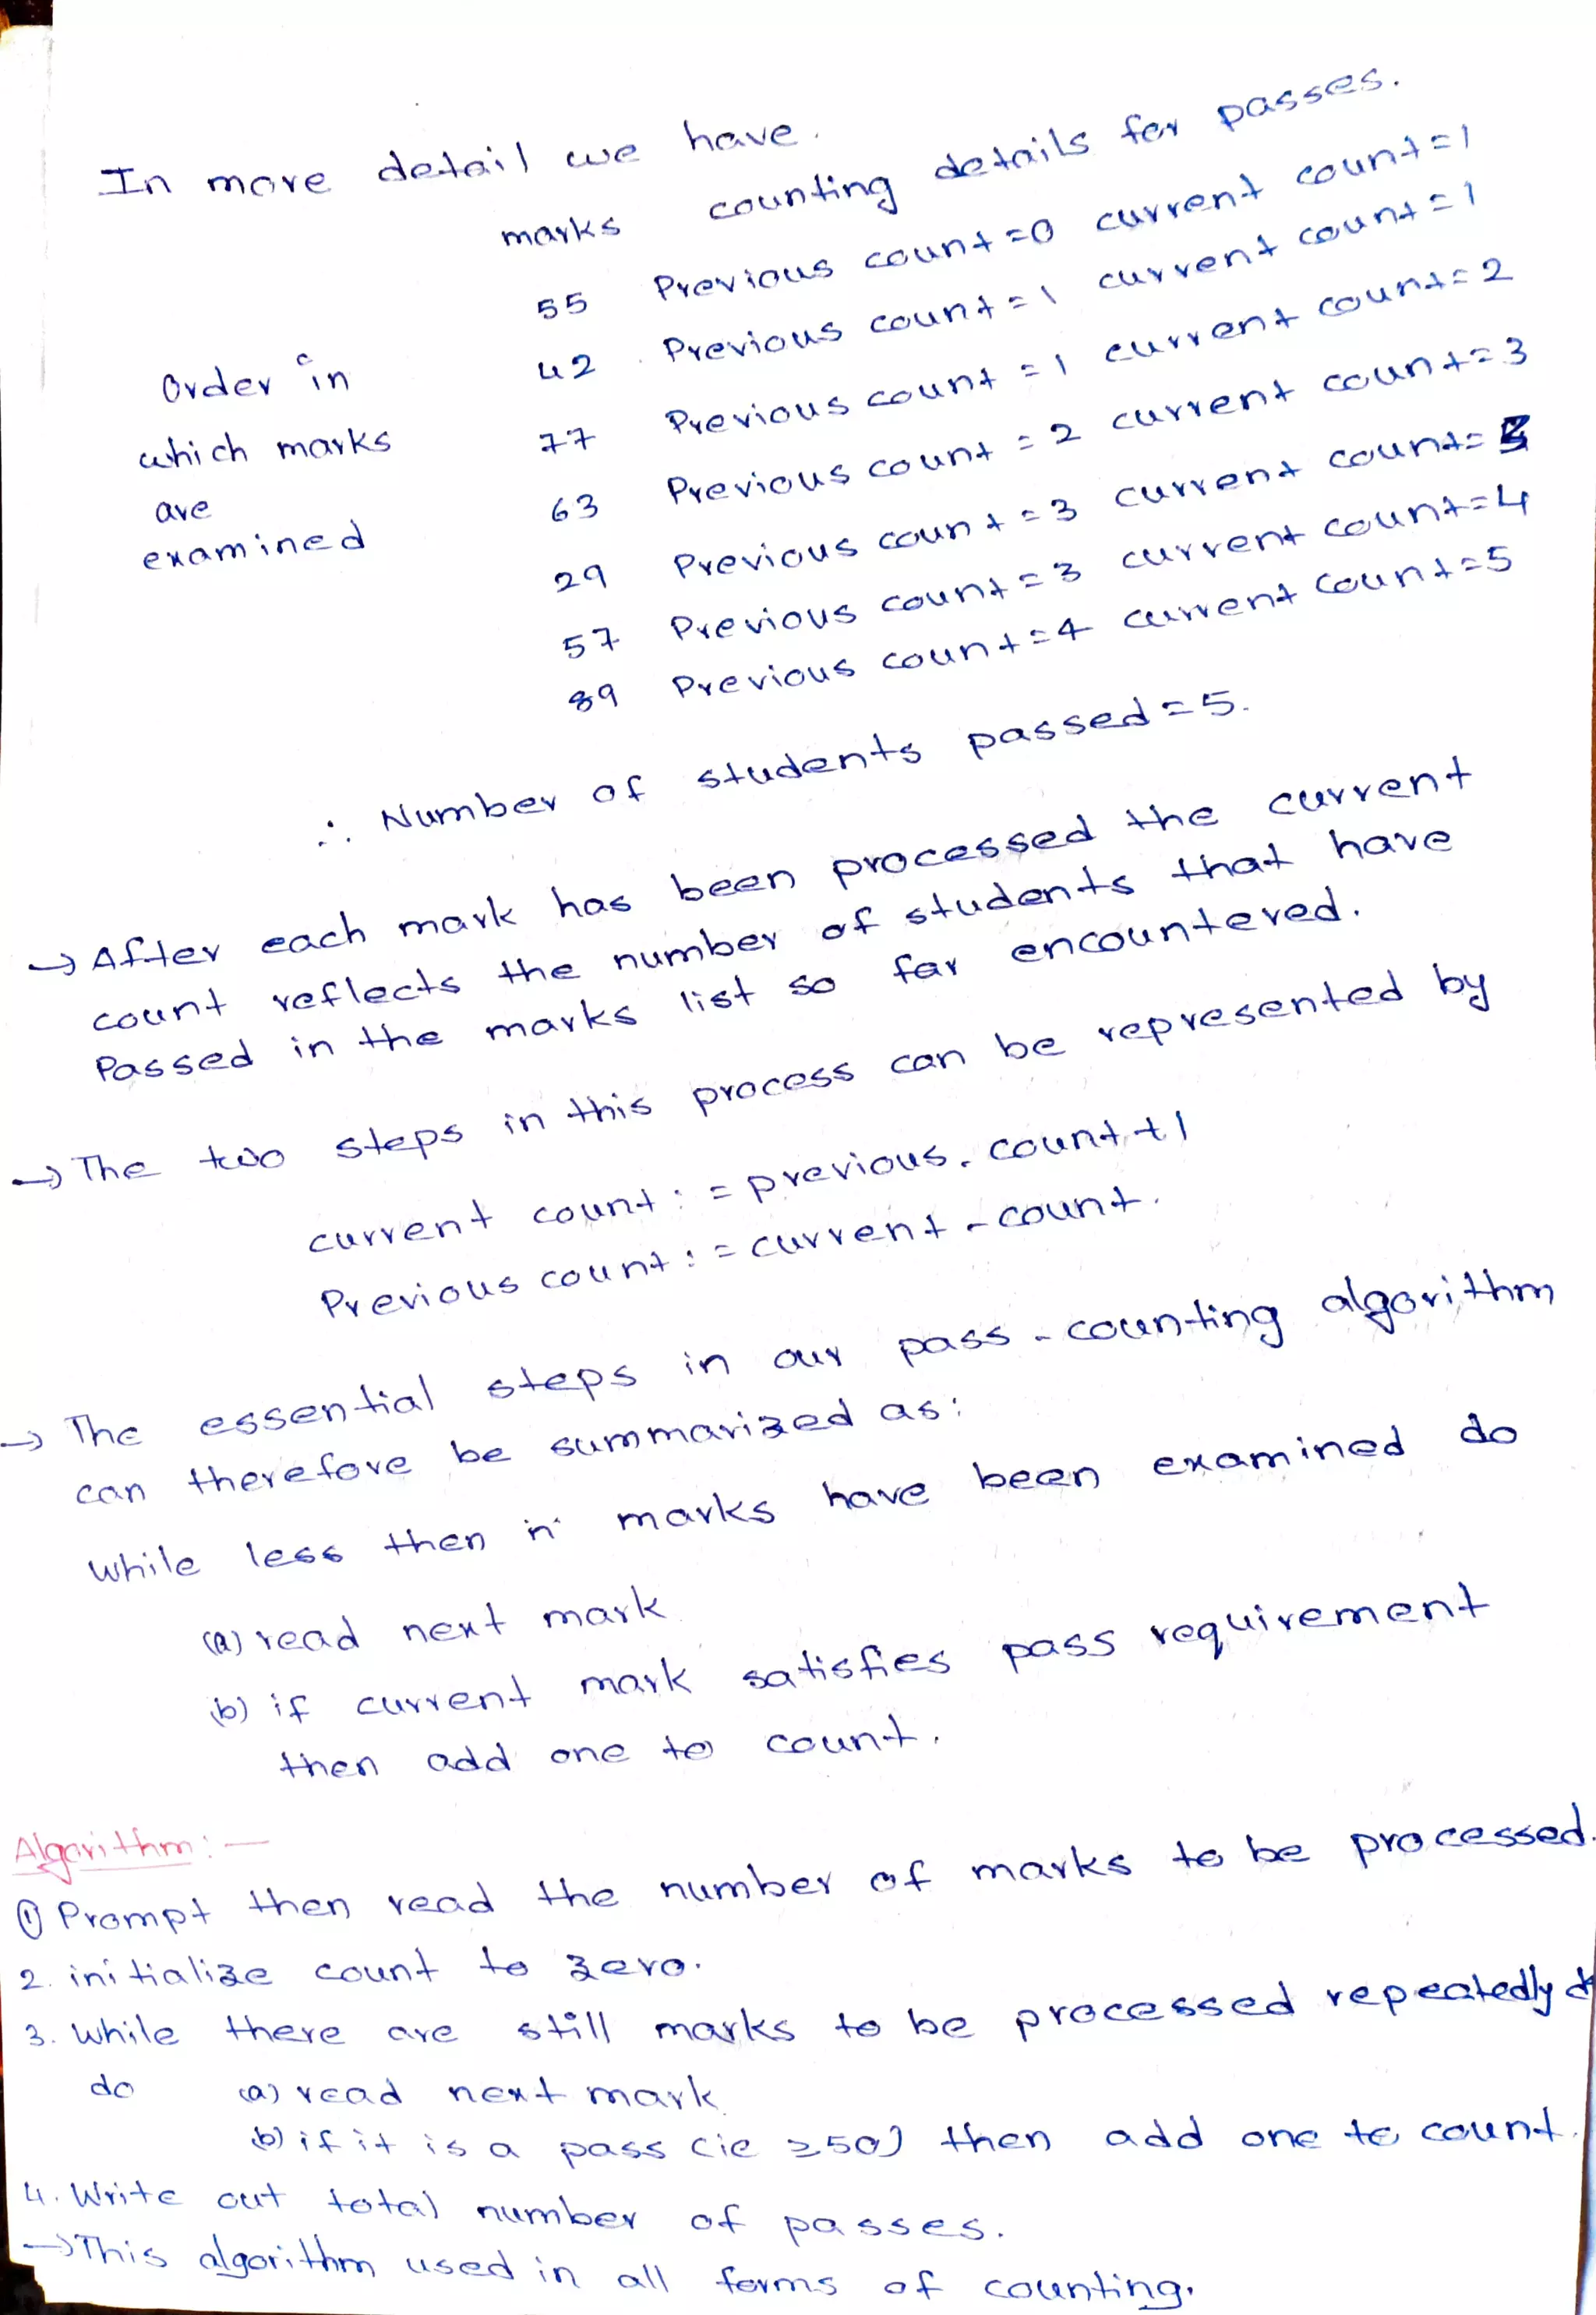 In more detail we have.
marks counting details for passes.
55 Previous count=0 current count=1
42 Previous count=1 current count=1
77 Previous count=1 current count=2
63 Previous count=2 current count=3
29 Previous count=3 current count=3
57 Previous count=3 current count=4
89 Previous count=4 current count=5
Order in
which marks
are
examined
∴ Number of students passed=5.
→ After each mark has been processed the current
count reflects the number of students that have
Passed in the marks list so far encountered.
→ The two steps in this process can be represented by
current count:=previous-count+1
Previous count:=current-count.
→ The essential steps in our pass-counting algorithm
can therefore be summarized as:
while less then 'n' marks have been examined do
(a) read next mark
(b) if current mark satisfies pass requirement
then add one to count.
Algorithm:-
① Prompt then read the number of marks to be processed.
2. initialize count to zero.
3. while there are still marks to be processed repeatedly
do (a) read next mark
(b) if it is a pass (ie ≥50) then add one to count.
4. Write out total number of passes.
→ This algorithm used in all forms of counting.